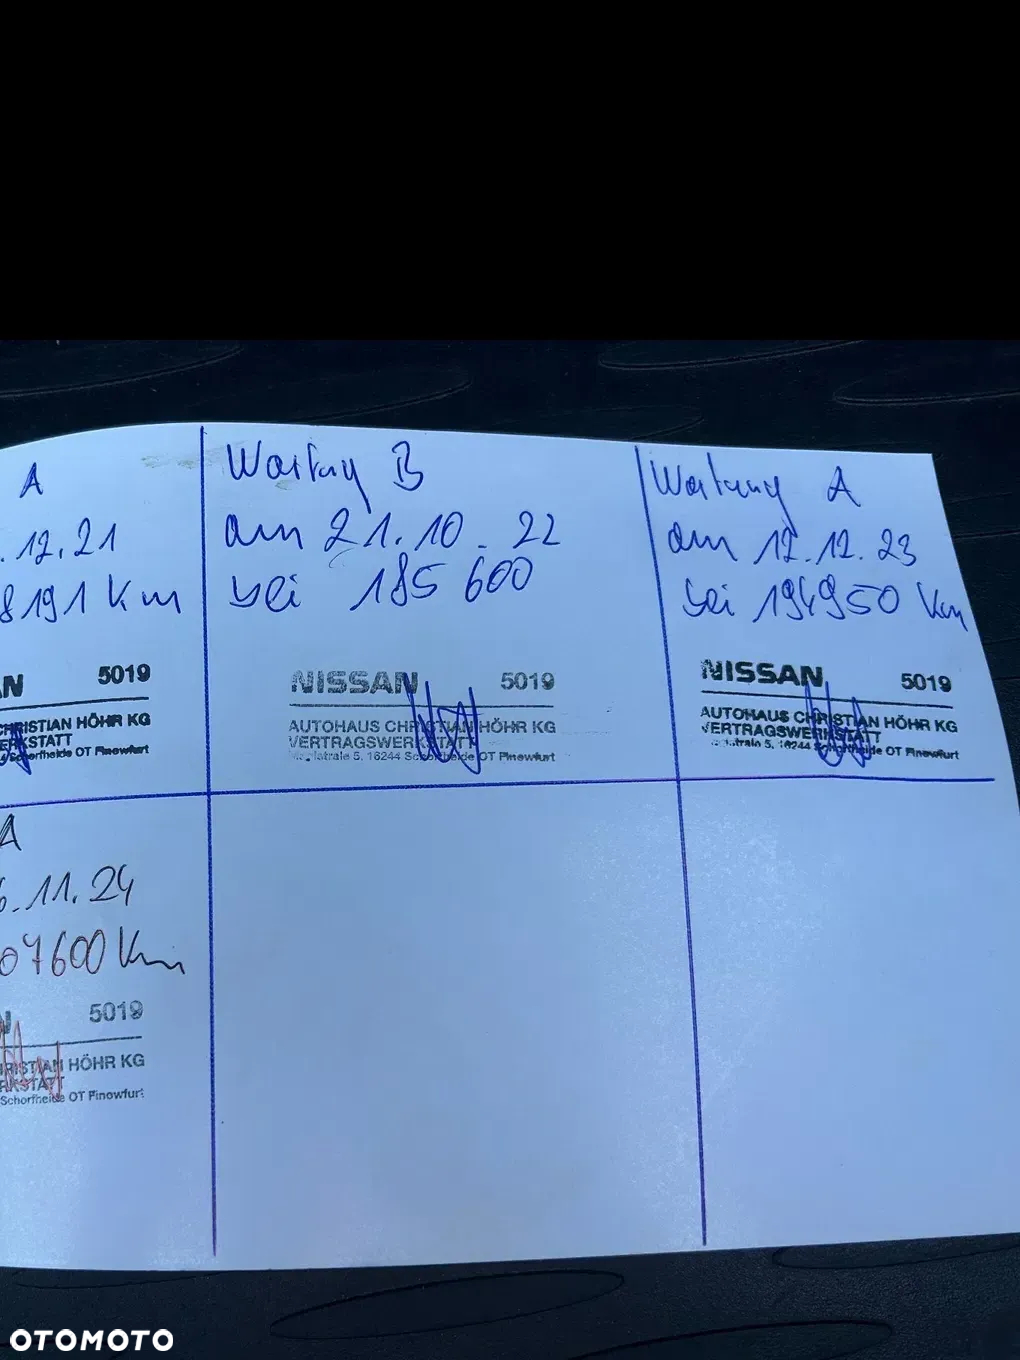 A
.12.21
8191 Km
N 5019
CHRISTIAN HÖHR KG
ERKSTATT
Schorfheide OT Finowfurt
Wartung B
am 21.10.22
bei 185 600
NISSAN 5019
AUTOHAUS CHRISTIAN HÖHR KG
VERTRAGSWERKSTATT
5, 16244 Schorfheide OT Finowfurt
Wartung A
am 12.12.23
bei 194950 Km
NISSAN 5019
AUTOHAUS CHRISTIAN HÖHR KG
VERTRAGSWERKSTATT
5, 16244 Schorfheide OT Finowfurt
A
6.11.24
07600 Km
5019
RISTIAN HÖHR KG
RKSTATT
Schorfheide OT Finowfurt
OTOMOTO